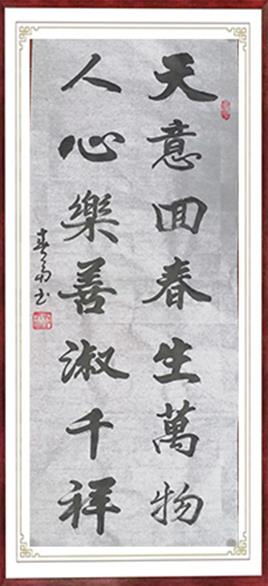 天意回春生萬物
人心樂善淑千祥